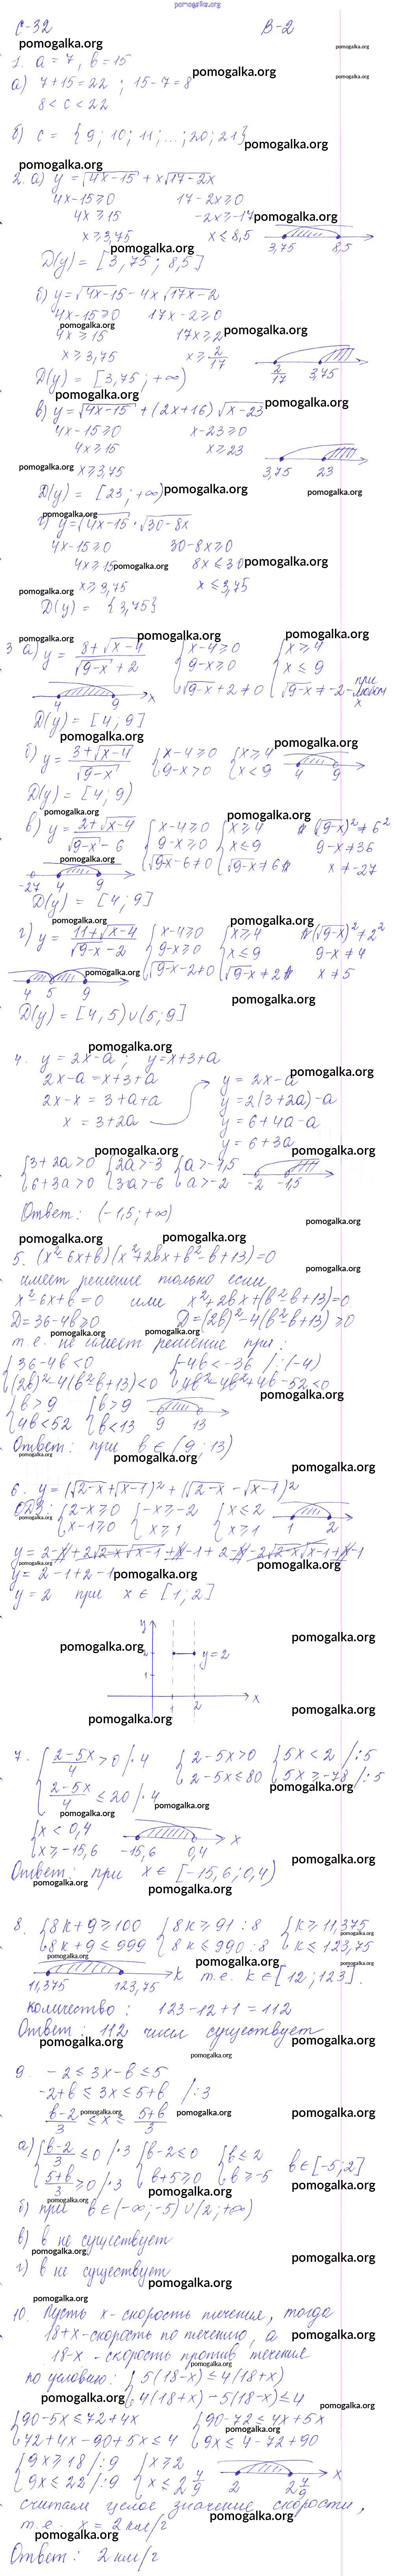 pomogalka.org
С-32 В-2
1. a = 7, b = 15
а) 7+15=22 ; 15-7=8
8 < c < 22
б) c = {9; 10; 11; ...; 20; 21}
2. а) y = √4x-15 + x√17-2x
4x-15≥0 17-2x≥0
4x≥15 -2x≥-17
x≥3,75 x≤8,5
3,75 8,5
D(y) = [3,75; 8,5]
б) y=√4x-15 - 4x√17x-2
4x-15≥0 17x-2≥0
4x≥15 17x≥2
x≥3,75 x≥2/17
2/17 3,75
D(y) = [3,75; +∞)
в) y=√4x-15 + (2x+16)√x-23
4x-15≥0 x-23≥0
4x≥15 x≥23
x≥3,75
3,75 23
D(y) = [23; +∞)
г) y=√4x-15 · √30-8x
4x-15≥0 30-8x≥0
4x≥15 8x≤30
x≥3,75 x≤3,75
D(y) = {3,75}
3 а) y = (8+√x-4)/(√9-x+2) {x-4≥0 {x≥4
9-x≥0 x≤9
√9-x+2≠0 √9-x≠-2 - при любом x
4 9 x
D(y) = [4; 9]
б) y = (3+√x-4)/√9-x {x-4≥0 {x≥4
9-x>0 x<9
4 9
D(y) = [4; 9)
в) y = (2+√x-4)/(√9-x-6) {x-4≥0 {x≥4 (√9-x)²≠6²
9-x≥0 x≤9 9-x≠36
√9-x-6≠0 √9-x≠6 x≠-27
-27 4 9
D(y) = [4; 9]
г) y = (11+√x-4)/(√9-x-2) {x-4≥0 {x≥4 (√9-x)²≠2²
9-x≥0 x≤9 9-x≠4
√9-x-2≠0 √9-x≠2 x≠5
4 5 9
D(y) = [4, 5)∪(5; 9]
4. y = 2x-a; y=x+3+a
2x-a=x+3+a y = 2x-a
2x-x=3+a+a y=2(3+2a)-a
x = 3+2a y = 6+4a-a
y = 6+3a
{3+2a>0 {2a>-3 {a>-1,5
6+3a>0 3a>-6 a>-2
-2 -1,5
Ответ: (-1,5; +∞)
5. (x²-6x+b)(x²+2bx+b²-b+13)=0
имеет решение только если
x²-6x+b=0 или x²+2bx+(b²-b+13)=0
D=36-4b≥0 D=(2b)²-4(b²-b+13)≥0
т.е. не имеет решение при:
{36-4b<0 {-4b<-36 /:(-4)
(2b)²-4(b²-b+13)<0 4b²-4b²+4b-52<0
{b>9 {b>9
4b<52 b<13
9 13
Ответ: при b∈(9; 13)
6. y=(√2-x+√x-1)²+(√2-x-√x-1)²
ОДЗ: {2-x≥0 {-x≥-2 {x≤2
x-1≥0 x≥1 x≥1
1 2
y=2-x+2√2-x√x-1+x-1+2-x-2√2-x√x-1+x-1
y = 2-1+2-1
y = 2 при x∈[1; 2]
y
2 y=2
1
1 2 x
7. {(2-5x)/4>0 /·4 {2-5x>0 {5x<2 /:5
(2-5x)/4≤20 /·4 2-5x≤80 5x≥-78 /:5
{x<0,4
x≥-15,6
-15,6 0,4 x
Ответ: при x∈[-15,6; 0,4)
8. {8k+9≥100 {8k≥91 :8 {k≥11,375
8k+9≤999 8k≤990 :8 k≤123,75
11,375 123,75 k т.е. k∈[12; 123].
количество: 123-12+1=112
Ответ: 112 чисел существует
9. -2≤3x-b≤5
-2+b≤3x≤5+b /:3
(b-2)/3≤x≤(5+b)/3
а) {(b-2)/3≤0 /·3 {b-2≤0 {b≤2 b∈[-5; 2]
(5+b)/3≥0 /·3 b+5≥0 b≥-5
б) при b∈(-∞; -5)∪(2; +∞)
в) b не существует
г) b не существует
10. Пусть x-скорость течения, тогда
18+x-скорость по течению, а
18-x-скорость против течения
по условию: {5(18-x)≤4(18+x)
4(18+x)-5(18-x)≤4
{90-5x≤72+4x {90-72≤4x+5x
72+4x-90+5x≤4 9x≤4-72+90
{9x≥18 /:9 {x≥2
9x≤22 /:9 x≤2 4/9
2 2 4/9 x
считаем целое значение скорости,
т.е. x = 2 км/г
Ответ: 2 км/г